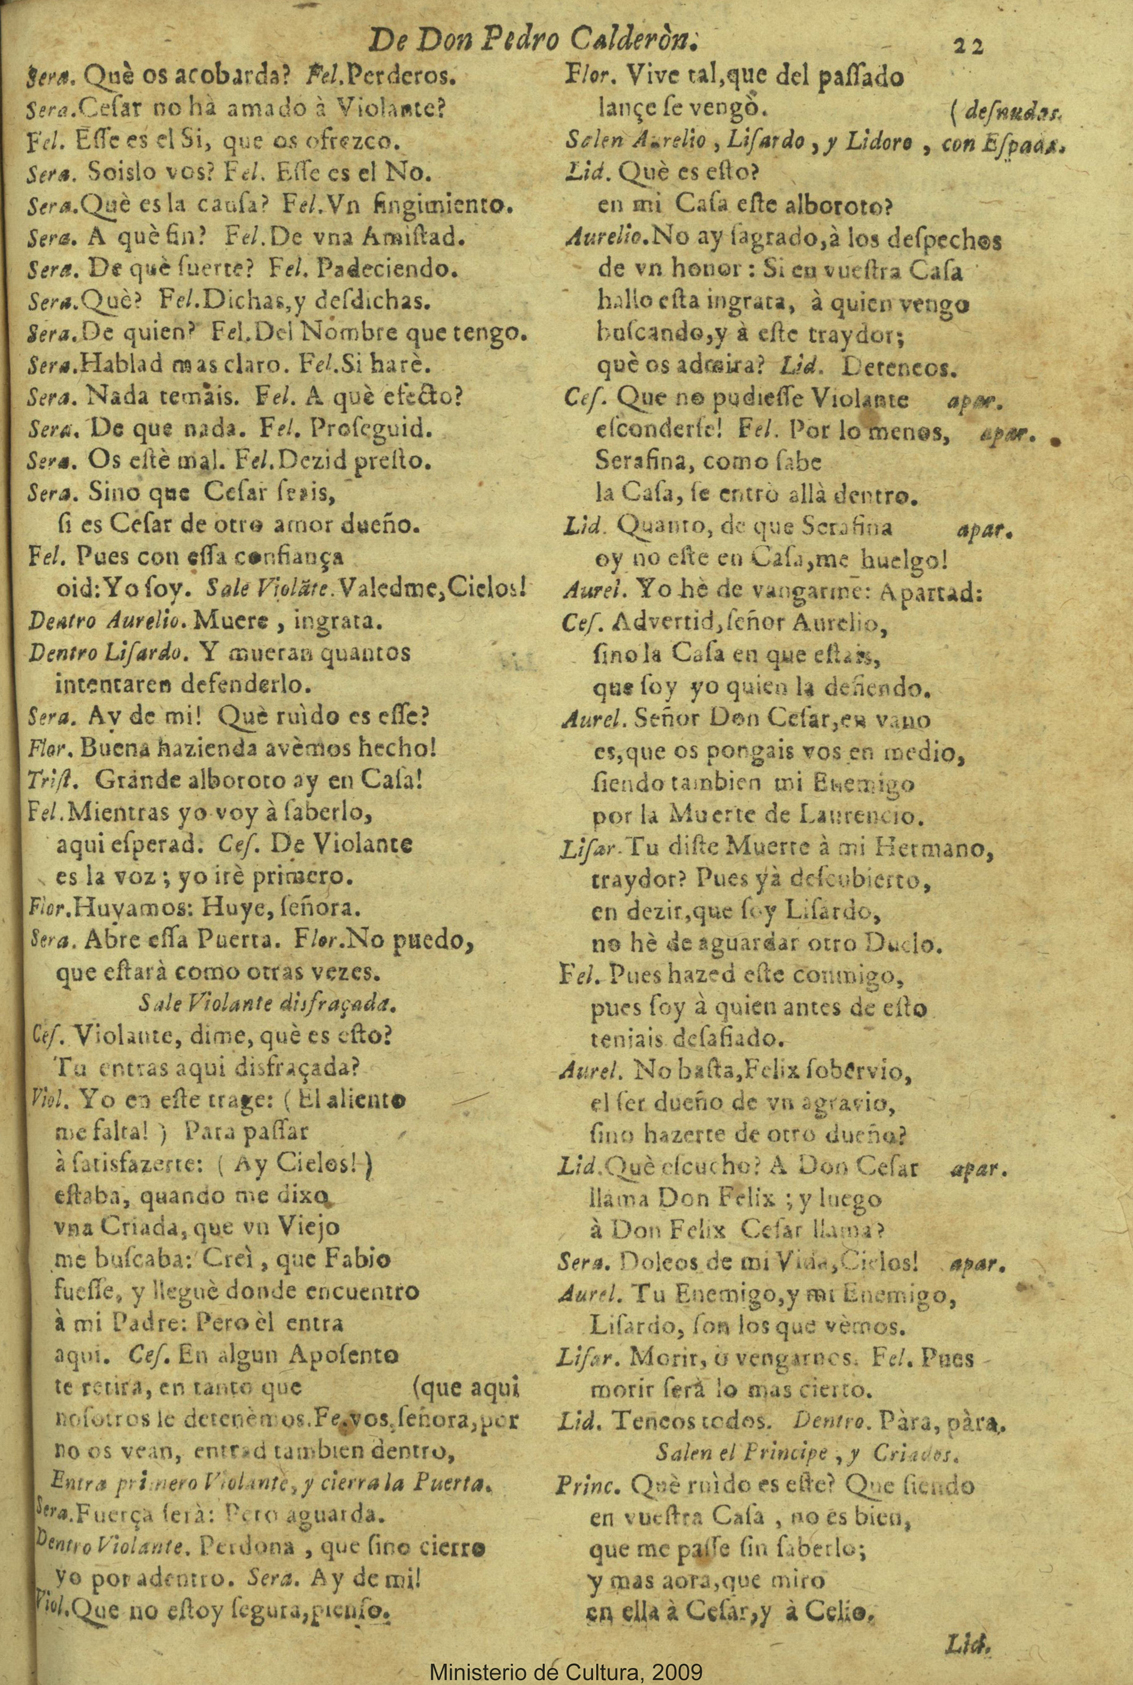 De Don Pedro Calderòn. 22
Sera. Què os acobarda? Fel.Perderos.
Sera.Cesar no hà amado à Violante?
Fel. Esse es el Si, que os ofrezco.
Sera. Soislo vos? Fel. Esse es el No.
Sera.Què es la causa? Fel.Vn fingimiento.
Sera. A què fin? Fel.De vna Amistad.
Sera. De què suerte? Fel. Padeciendo.
Sera.Què? Fel.Dichas,y desdichas.
Sera.De quien? Fel.Del Nombre que tengo.
Sera.Hablad mas claro. Fel.Si harè.
Sera. Nada temais. Fel. A què efecto?
Sera. De que nada. Fel. Proseguid.
Sera. Os estè mal. Fel.Dezid presto.
Sera. Sino que Cesar seais,
si es Cesar de otro amor dueño.
Fel. Pues con essa confiança
oid:Yo soy. Sale Violãte.Valedme,Cielos!
Dentro Aurelio. Muere , ingrata.
Dentro Lisardo. Y mueran quantos
intentaren defenderlo.
Sera. Ay de mi! Què ruìdo es esse?
Flor. Buena hazienda avèmos hecho!
Trist. Grande alboroto ay en Casa!
Fel.Mientras yo voy à saberlo,
aqui esperad. Ces. De Violante
es la voz; yo irè primero.
Flor.Huyamos: Huye, señora.
Sera. Abre essa Puerta. Flor.No puedo,
que estarà como otras vezes.
Sale Violante disfraçada.
Ces. Violante, dime, què es esto?
Tu entras aqui disfraçada?
Viol. Yo en este trage: ( El aliento
me falta! ) Para passar
à satisfazerte: ( Ay Cielos! )
estaba, quando me dixo
vna Criada, que vn Viejo
me buscaba: Creì , que Fabio
fuesse, y lleguè donde encuentro
à mi Padre: Pero èl entra
aqui. Ces. En algun Aposento
te retira, en tanto que (que aqui
nosotros le detenèmos.Fe.vos,señora,por
no os vean, entrad tambien dentro,
Entra primero Violante, y cierra la Puerta.
Sera.Fuerça serà: Pero aguarda.
Dentro Violante. Perdona , que sino cierro
yo por adentro. Sera. Ay de mi!
Viol.Que no estoy segura,pienso.
Flor. Vive tal,que del passado
lançe se vengò. ( desnudas.
Salen Aurelio , Lisardo , y Lidoro , con Espadas.
Lid. Què es esto?
en mi Casa este alboroto?
Aurelio.No ay sagrado,à los despechos
de vn honor : Si en vuestra Casa
hallo esta ingrata, à quien vengo
buscando,y à este traydor;
què os admira? Lid. Deteneos.
Ces. Que no pudiesse Violante apar.
esconderse! Fel. Por lo menos, apar.
Serafina, como sabe
la Casa, se entrò allà dentro.
Lid. Quanto, de que Serafina apar.
oy no este en Casa,me huelgo!
Aurel. Yo hè de vangarme: Apartad:
Ces. Advertid,señor Aurelio,
sino la Casa en que estais,
que soy yo quien la defiendo.
Aurel. Señor Don Cesar,en vano
es,que os pongais vos en medio,
siendo tambien mi Enemigo
por la Muerte de Laurencio.
Lisar.Tu diste Muerte à mi Hermano,
traydor? Pues yà descubierto,
en dezir,que soy Lisardo,
no hè de aguardar otro Duelo.
Fel. Pues hazed este conmigo,
pues soy à quien antes de esto
teniais desafiado.
Aurel. No basta,Felix sobervio,
el ser dueño de vn agravio,
sino hazerte de otro dueño?
Lid.Què escucho? A Don Cesar apar.
llama Don Felix ; y luego
à Don Felix Cesar llama?
Sera. Doleos de mi Vida,Cielos! apar.
Aurel. Tu Enemigo,y mi Enemigo,
Lisardo, son los que vèmos.
Lisar. Morir, ò vengarnos. Fel. Pues
morir serà lo mas cierto.
Lid. Teneos todos. Dentro. Pàra, pàra.
Salen el Principe , y Criados.
Princ. Què ruìdo es este? Que siendo
en vuestra Casa , no es bien,
que me passe sin saberlo;
y mas aora,que miro
en ella à Cesar,y à Celio.
Lid.
Ministerio de Cultura, 2009